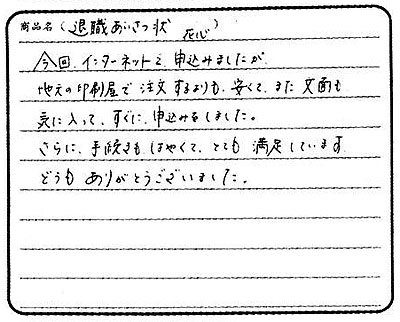 商品名(退職あいさつ状 花心)
今回、インターネットで、申込みましたが、
地元の印刷屋で注文するよりも、安くて、また文面も
気に入って、すぐに、申込みをしました。
さらに、手続きも、はやくて、とても 満足しています。
どうも ありがとうございました。